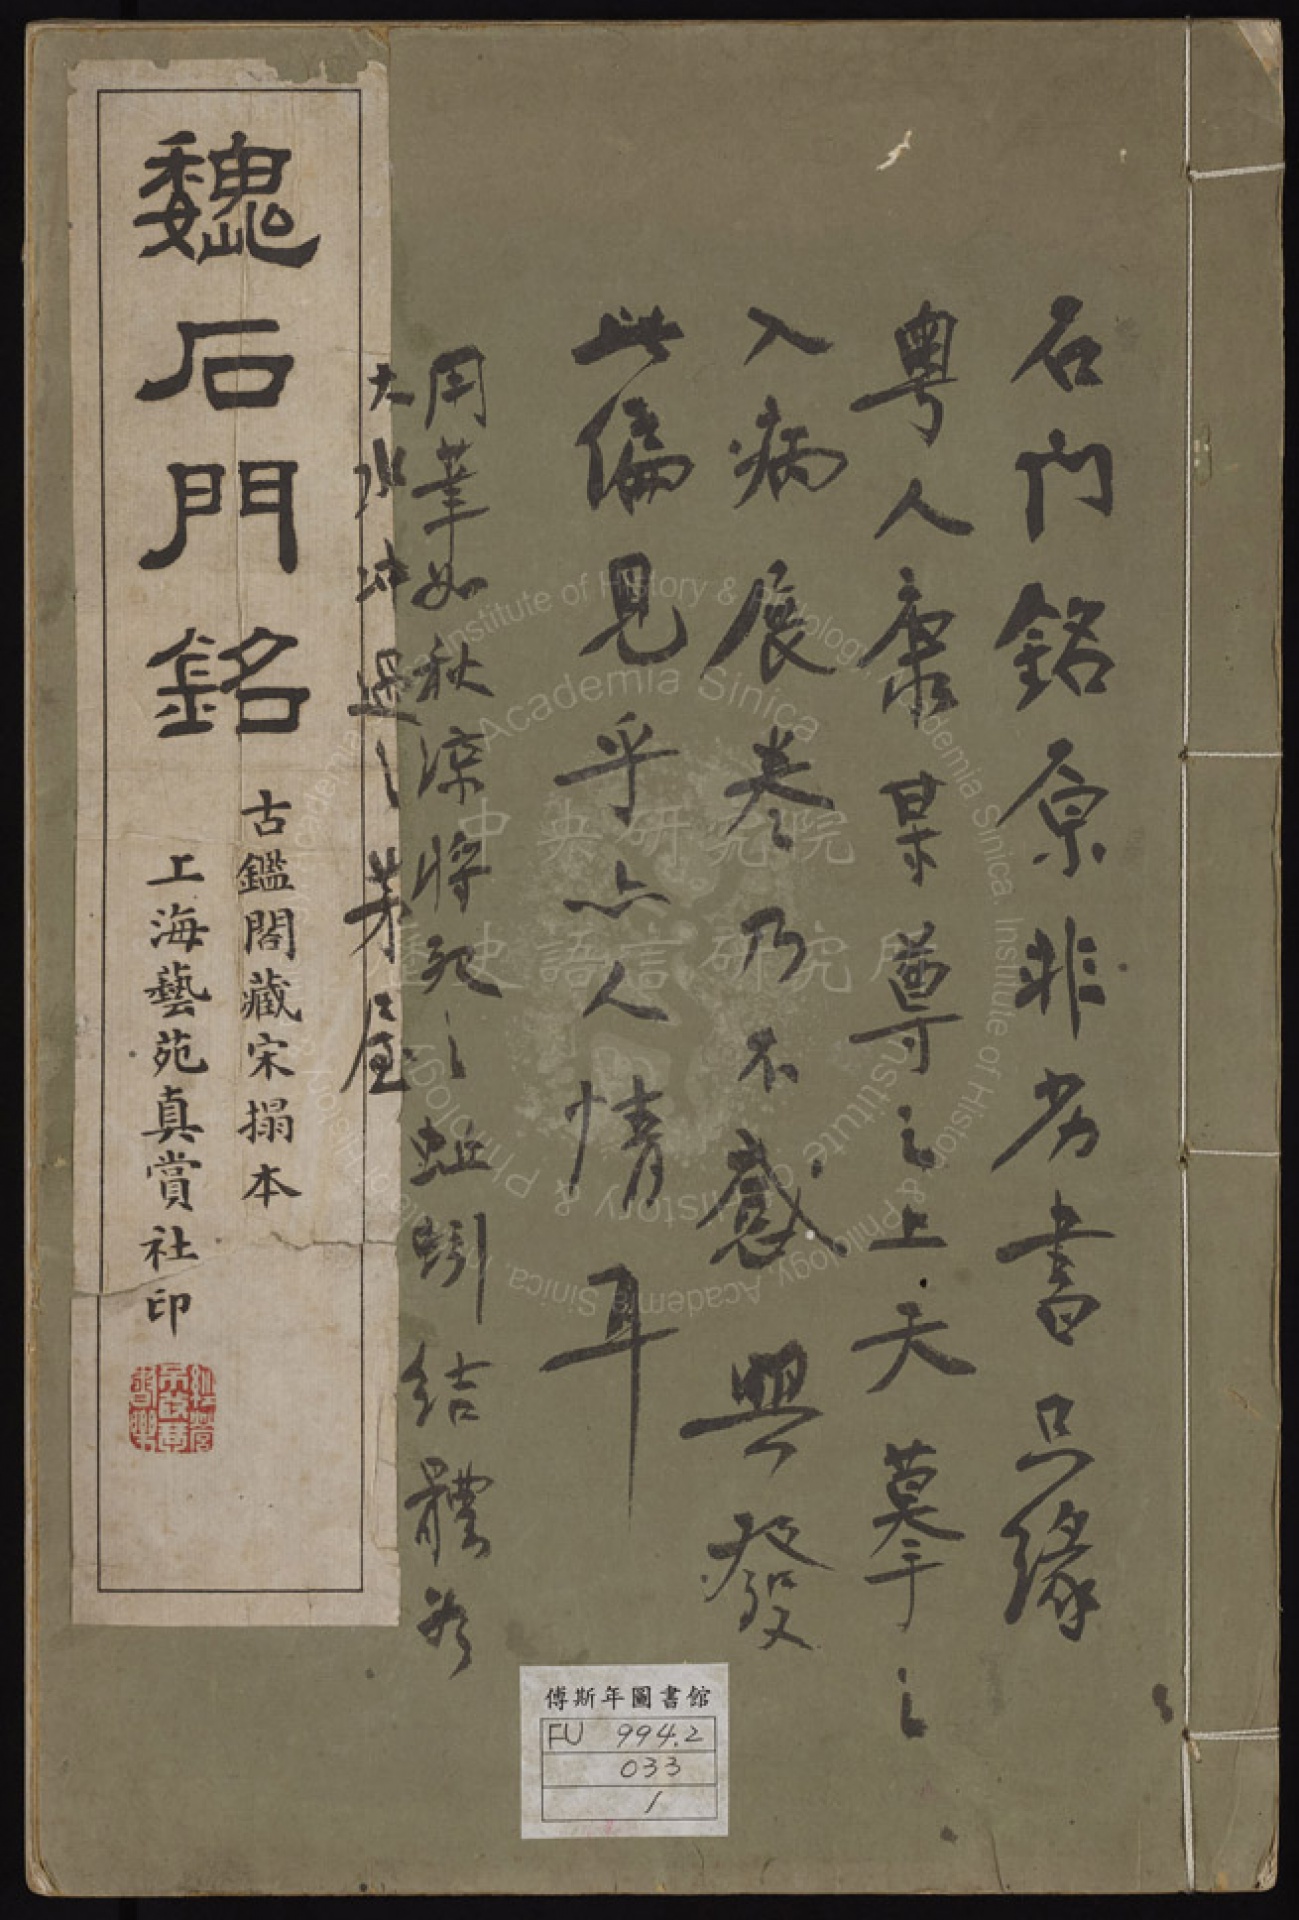 石門銘原非劣書只緣
粵人康某尊之上天摹之
入病展卷乃不感興發
此偏見乎亦人情耳
用筆如秋涼將死之蚯蚓結體為
大水冲過之茅屋
魏石門銘
古鑑閣藏宋搨本
上海藝苑真賞社印
傅斯年圖書館
FU 994.2
033
1
中央研究院
歷史語言研究所
Institute of History & Philology, Academia Sinica.
Academia Sinica